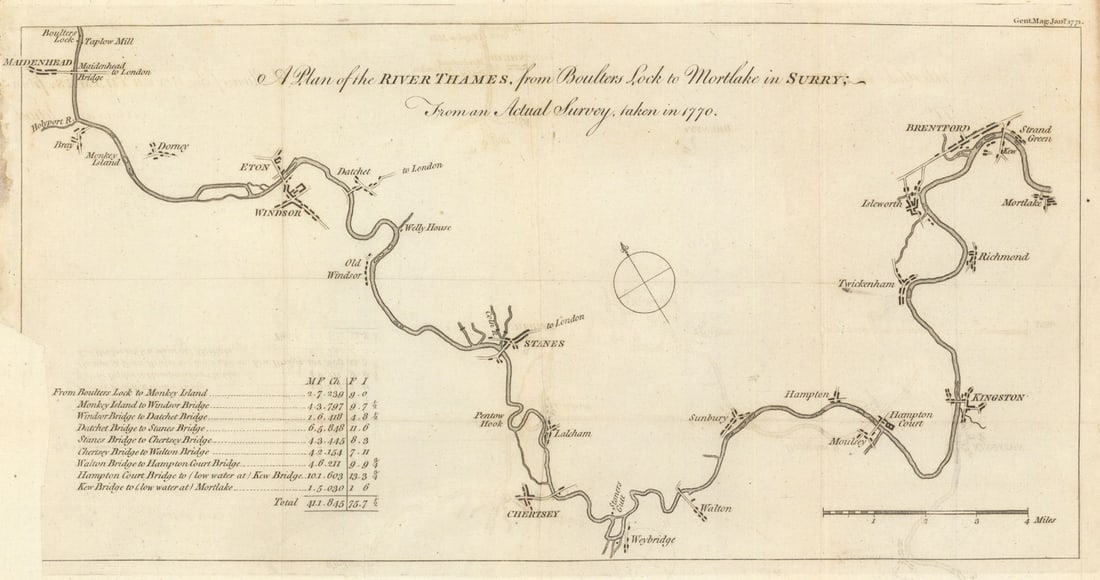 Gent. Mag. Jany. 1771.
A Plan of the RIVER THAMES, from Boulters Lock to Mortlake in SURRY;
From an Actual Survey, taken in 1770.
Boulters
Lock
Taplow Mill
MAIDENHEAD
Maidenhead
Bridge
to London
Holyport R.
Bray
Monkey
Island
Dorney
ETON
WINDSOR
Datchet
to London
Welly House
Old
Windsor
Coln R.
STANES
to London
Pentow
Hook
Laleham
CHERTSEY
Stoners
Gut
Weybridge
Walton
Sunbury
Hampton
Hampton
Court
Moulsey
KINGSTON
Twickenham
Richmond
Isleworth
BRENTFORD
Kew
Strand
Green
Mortlake
M F Ch F I
From Boulters Lock to Monkey Island 2.7.239 9.0
Monkey Island to Windsor Bridge 4.3.797 9.7
Windsor Bridge to Datchet Bridge 1.6.418 4.3
Datchet Bridge to Stanes Bridge 6.5.848 11.6
Stanes Bridge to Chertsey Bridge 4.3.445 8.3
Chertsey Bridge to Walton Bridge 4.2.154 7.11
Walton Bridge to Hampton Court Bridge 4.6.211 9.9
Hampton Court Bridge to (low water at) Kew Bridge 10.1.603 13.3
Kew Bridge to (low water at) Mortlake 1.5.030 1 6
Total 41.1.845 75.7
1 2 3 4 Miles